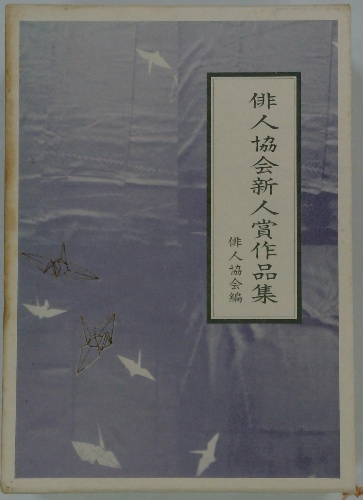 俳人協会新人賞作品集
俳人協会編